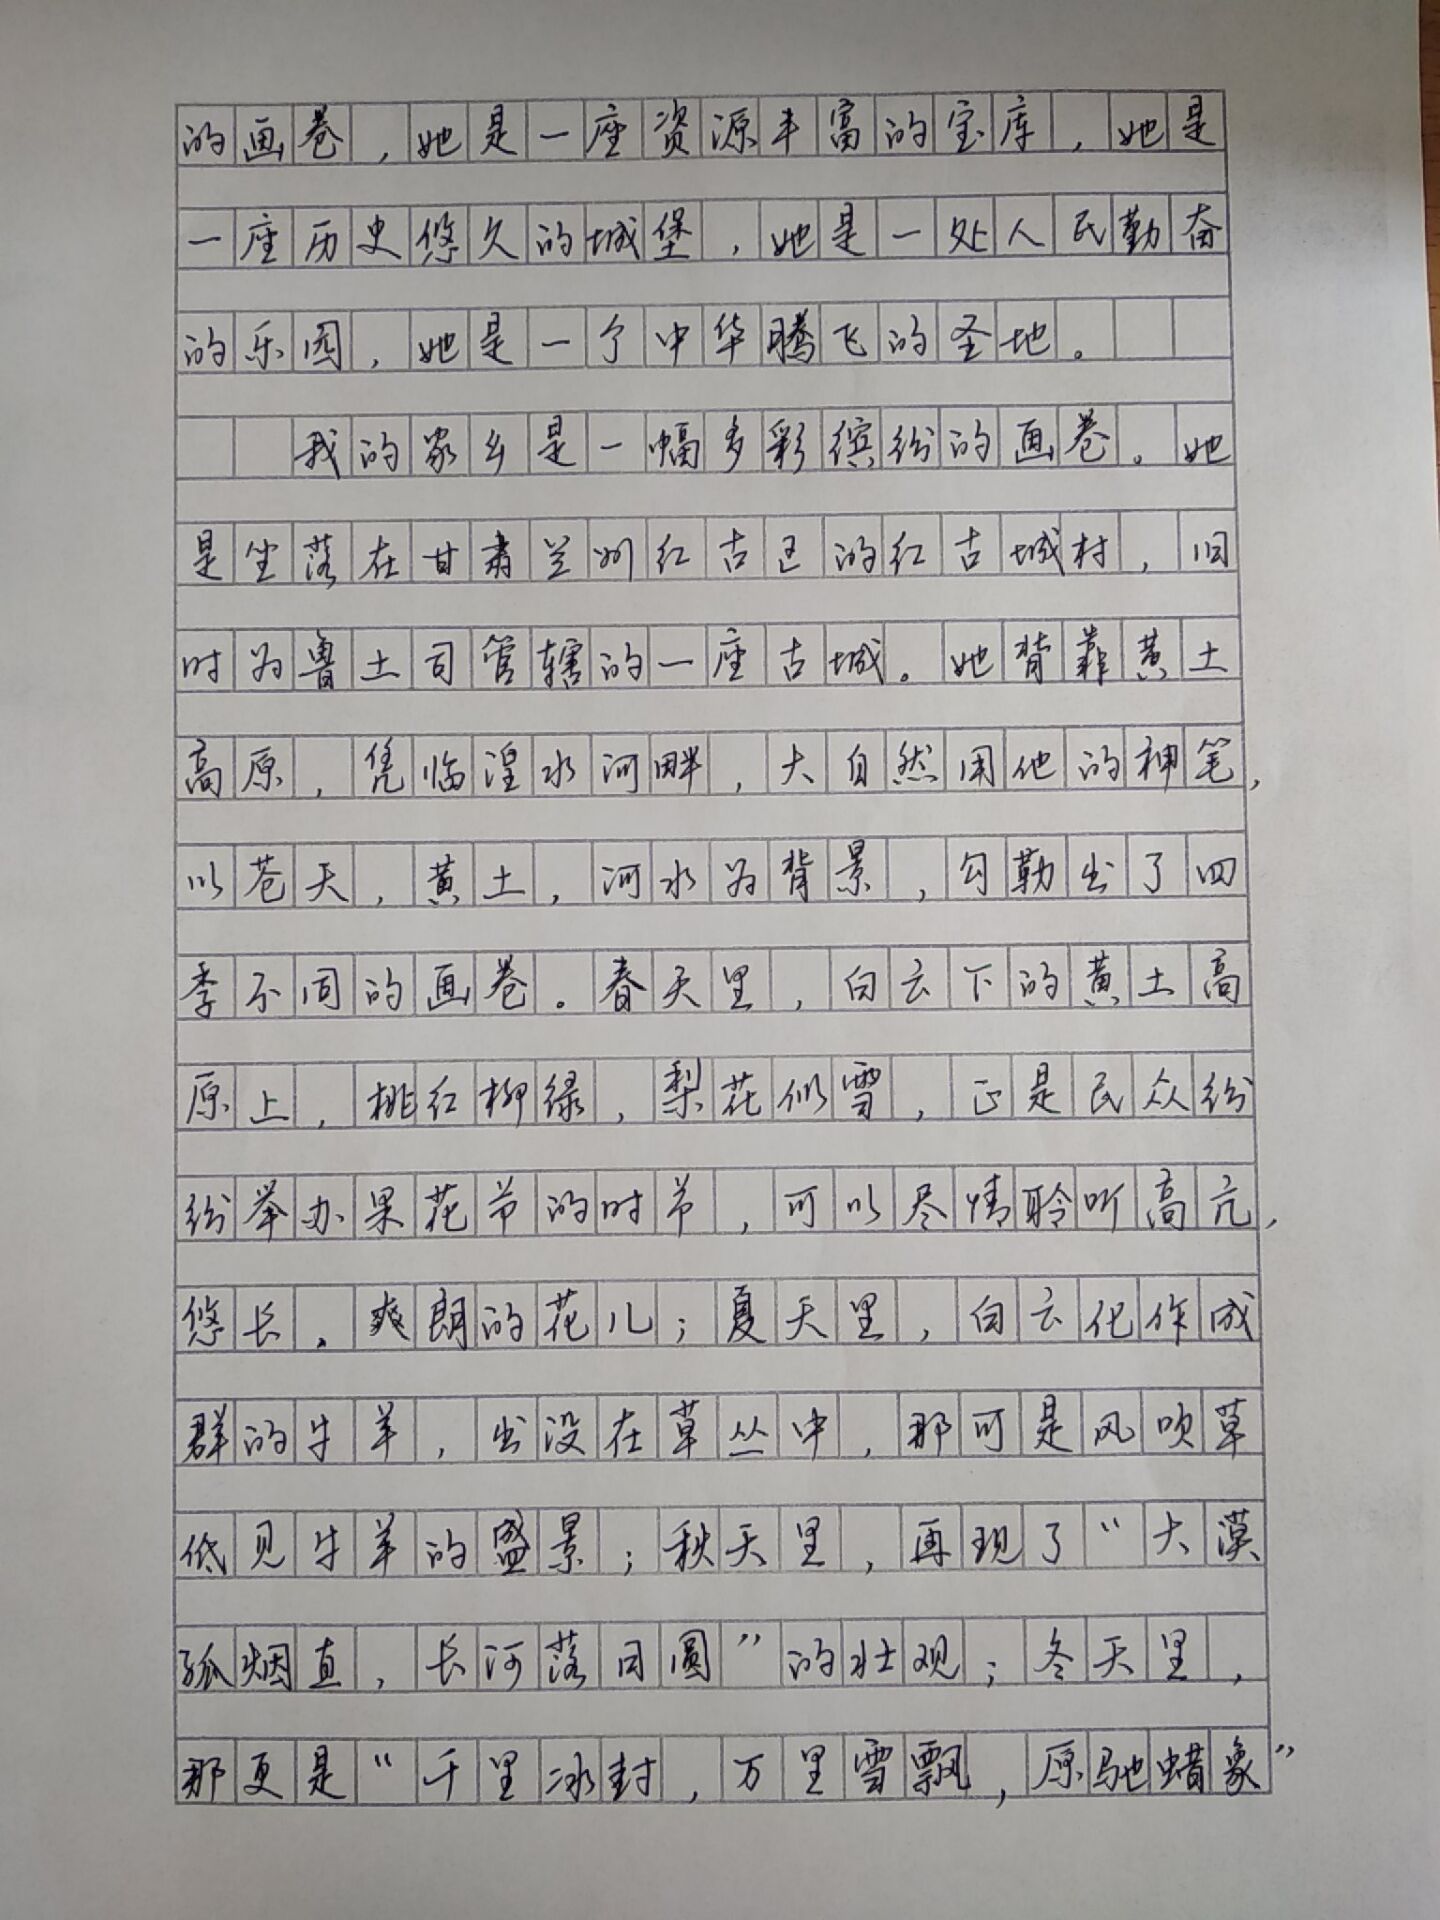 的画卷，她是一座资源丰富的宝库，她是
一座历史悠久的城堡，她是一处人民勤奋
的乐园，她是一个中华腾飞的圣地。
我的家乡是一幅多彩缤纷的画卷。她
是坐落在甘肃兰州红古区的红古城村，旧
时为鲁土司管辖的一座古城。她背靠黄土
高原，凭临湟水河畔，大自然用他的神笔，
以苍天，黄土，河水为背景，勾勒出了四
季不同的画卷。春天里，白云下的黄土高
原上，桃红柳绿，梨花似雪，正是民众纷
纷举办果花节的时节，可以尽情聆听高亢，
悠长，爽朗的花儿；夏天里，白云化作成
群的牛羊，出没在草丛中，那可是风吹草
低见牛羊的盛景；秋天里，再现了“大漠
孤烟直，长河落日圆”的壮观；冬天里，
那更是“千里冰封，万里雪飘，原驰蜡象”